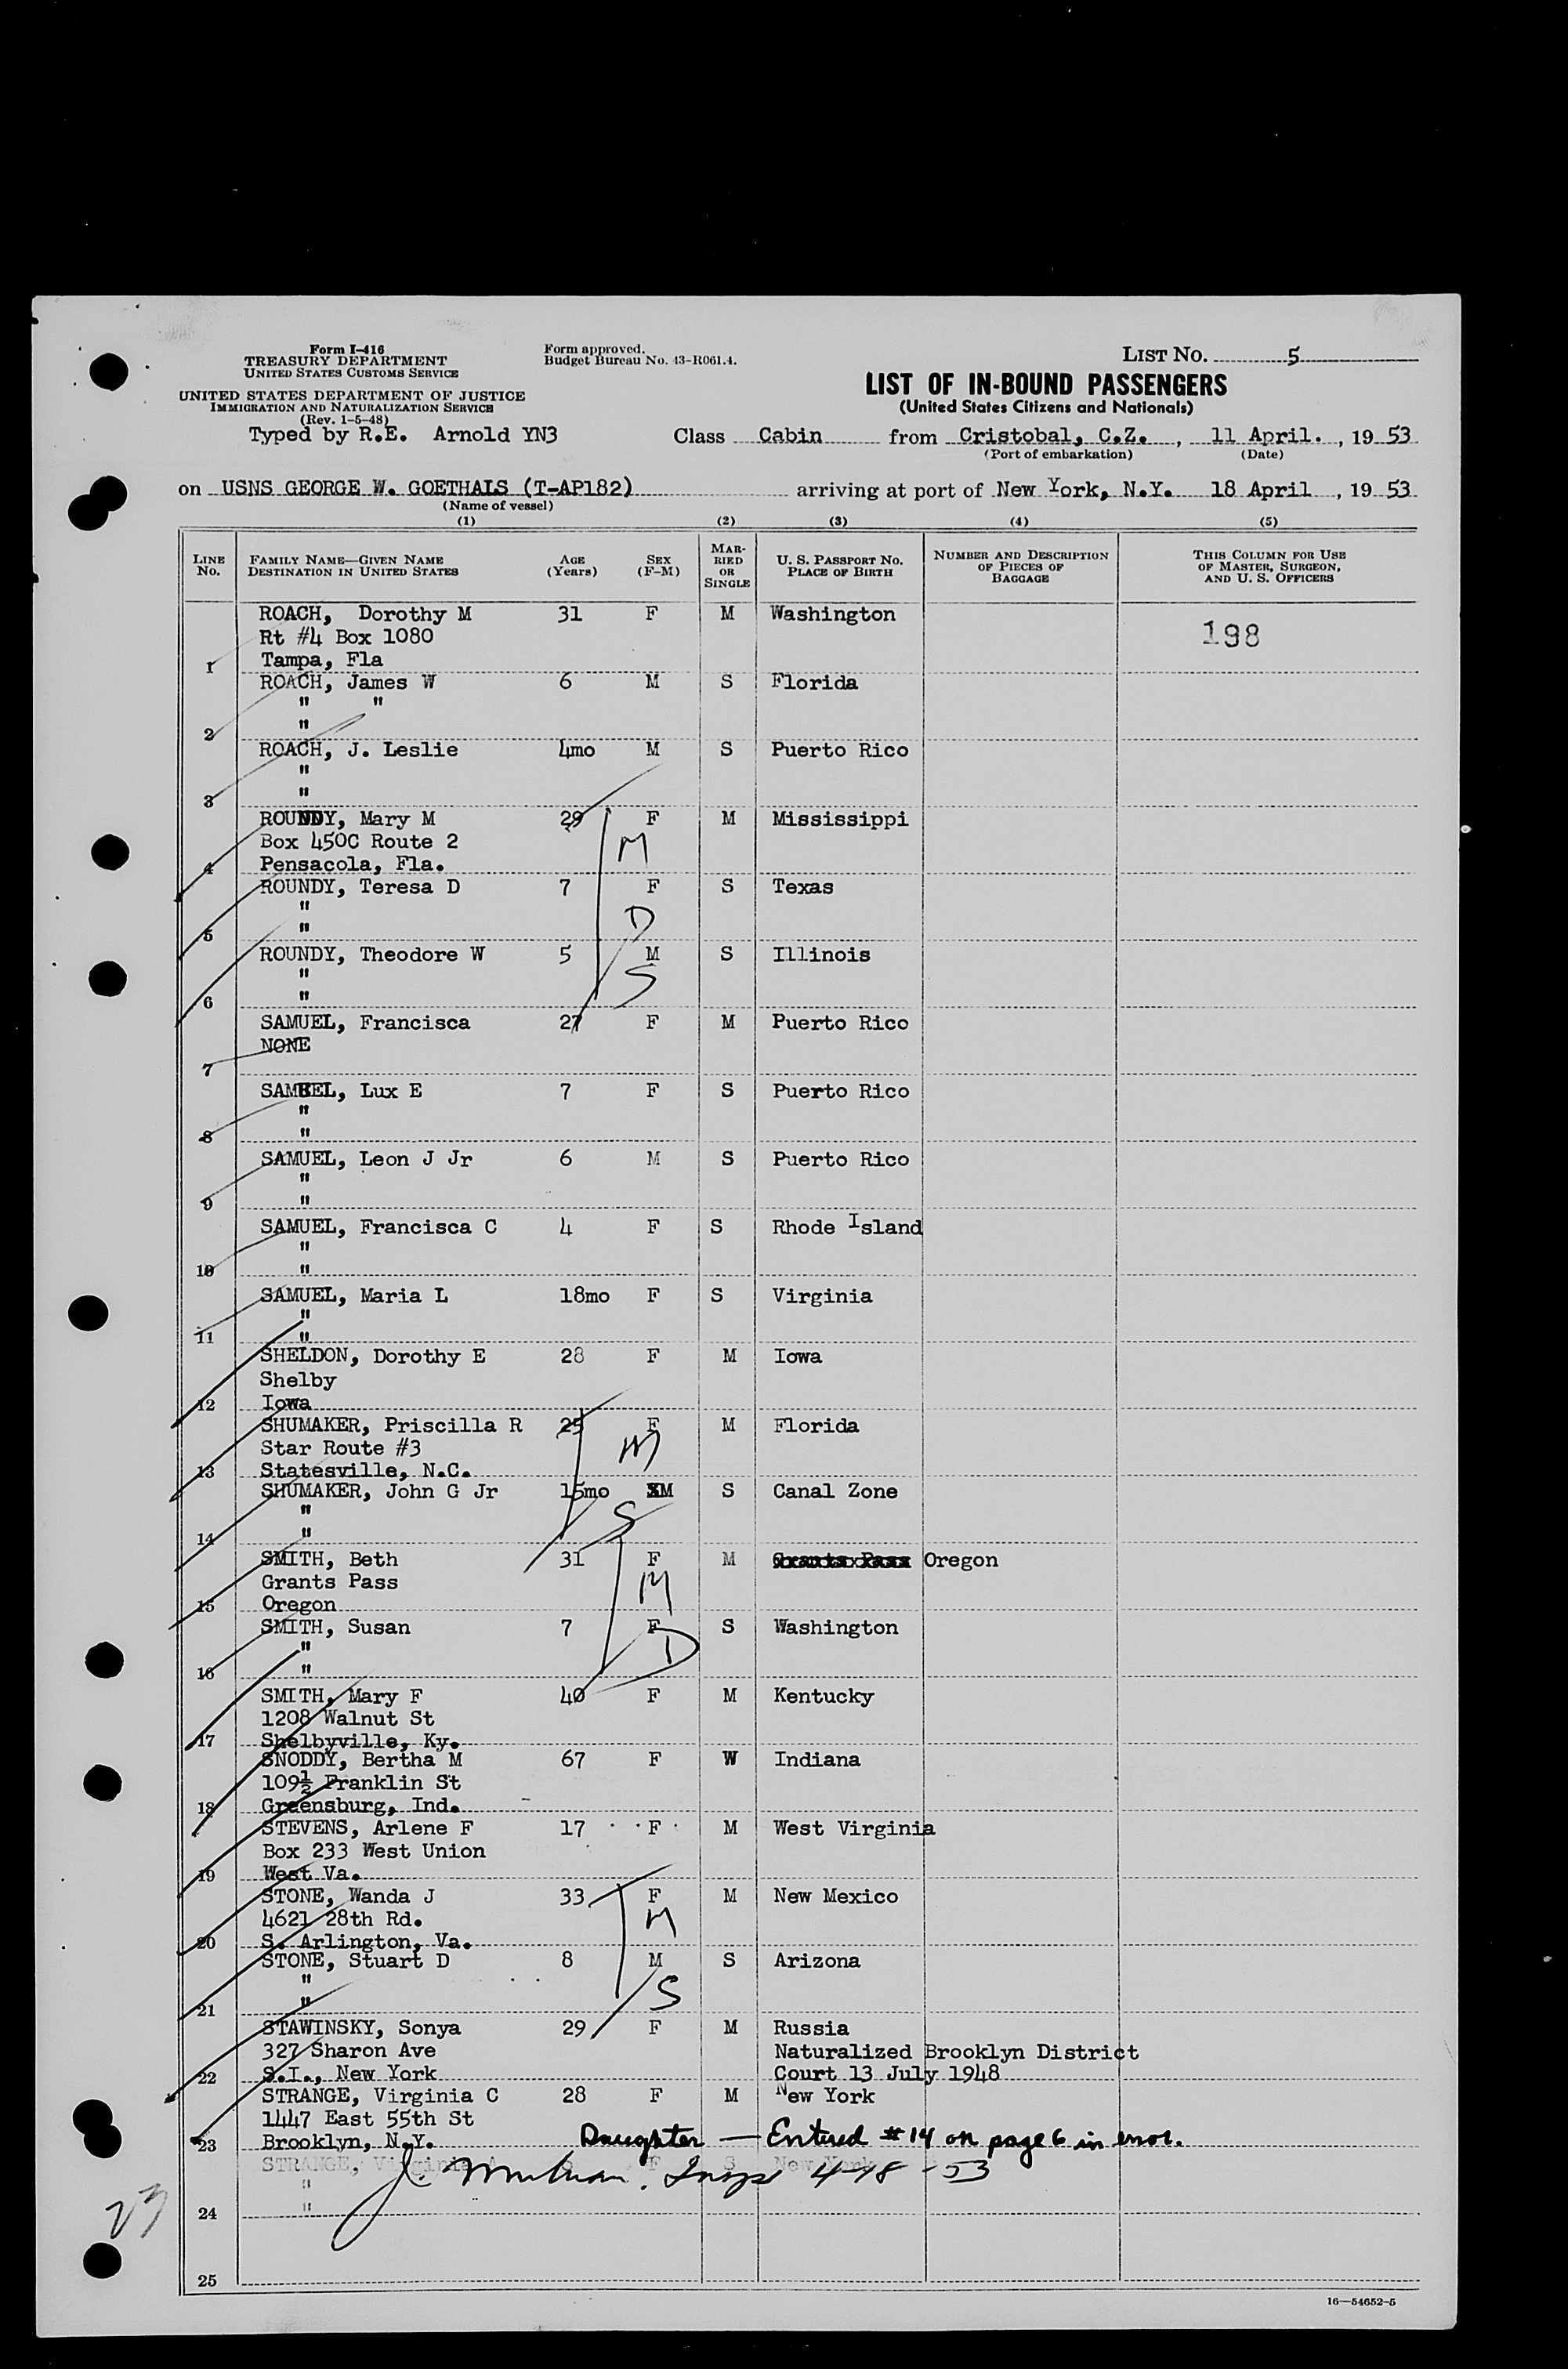 Form I-416
TREASURY DEPARTMENT
UNITED STATES CUSTOMS SERVICE
UNITED STATES DEPARTMENT OF JUSTICE
IMMIGRATION AND NATURALIZATION SERVICE
(Rev. 1-5-48)
Form approved.
Budget Bureau No. 43-R061.4.
LIST NO. 5
LIST OF IN-BOUND PASSENGERS
(United States Citizens and Nationals)
Typed by R.E. Arnold YN3 Class Cabin from Cristobal, C.Z. , 11 April. , 19 53
(Port of embarkation) (Date)
on USNS GEORGE W. GOETHALS (T-AP182) arriving at port of New York, N.Y. 18 April , 19 53
(Name of vessel)
(1) (2) (3) (4) (5)
LINE NO. FAMILY NAME—GIVEN NAME DESTINATION IN UNITED STATES AGE (Years) SEX (F-M) MARRIED OR SINGLE U. S. PASSPORT NO. PLACE OF BIRTH NUMBER AND DESCRIPTION OF PIECES OF BAGGAGE THIS COLUMN FOR USE OF MASTER, SURGEON, AND U. S. OFFICERS
ROACH, Dorothy M 31 F M Washington
Rt #4 Box 1080 198
1 Tampa, Fla
ROACH, James W 6 M S Florida
" "
2 "
ROACH, J. Leslie 4mo M S Puerto Rico
"
3 "
ROUNDY, Mary M 29 F M Mississippi
Box 450C Route 2 M
4 Pensacola, Fla.
ROUNDY, Teresa D 7 F S Texas
" D
5 "
ROUNDY, Theodore W 5 M S Illinois
" S
6 "
SAMUEL, Francisca 27 F M Puerto Rico
NONE
7
SAMUEL, Lux E 7 F S Puerto Rico
"
8 "
SAMUEL, Leon J Jr 6 M S Puerto Rico
"
9 "
SAMUEL, Francisca C 4 F S Rhode Island
"
10 "
SAMUEL, Maria L 18mo F S Virginia
"
11 "
SHELDON, Dorothy E 28 F M Iowa
Shelby
12 Iowa
SHUMAKER, Priscilla R 25 F M Florida
Star Route #3 M
13 Statesville, N.C.
SHUMAKER, John G Jr 15mo M S Canal Zone
" S
14 "
SMITH, Beth 31 F M Grants Pass Oregon
Grants Pass M
15 Oregon
SMITH, Susan 7 F S Washington
" D
16 "
SMITH, Mary F 40 F M Kentucky
1208 Walnut St
17 Shelbyville, Ky.
SNODDY, Bertha M 67 F W Indiana
109½ Franklin St
18 Greensburg, Ind.
STEVENS, Arlene F 17 F M West Virginia
Box 233 West Union
19 West Va.
STONE, Wanda J 33 F M New Mexico
4621 28th Rd. M
20 S. Arlington, Va.
STONE, Stuart D 8 M S Arizona
" S
21 "
STAWINSKY, Sonya 29 F M Russia
327 Sharon Ave Naturalized Brooklyn District
22 S.I., New York Court 13 July 1948
STRANGE, Virginia C 28 F M New York
1447 East 55th St
23 Brooklyn, N.Y. Daughter — Entered #14 on page 6 in error.
STRANGE, Virginia A F S New York
" J. Insp 4-18-53
24 "
23
25
16—54652-5